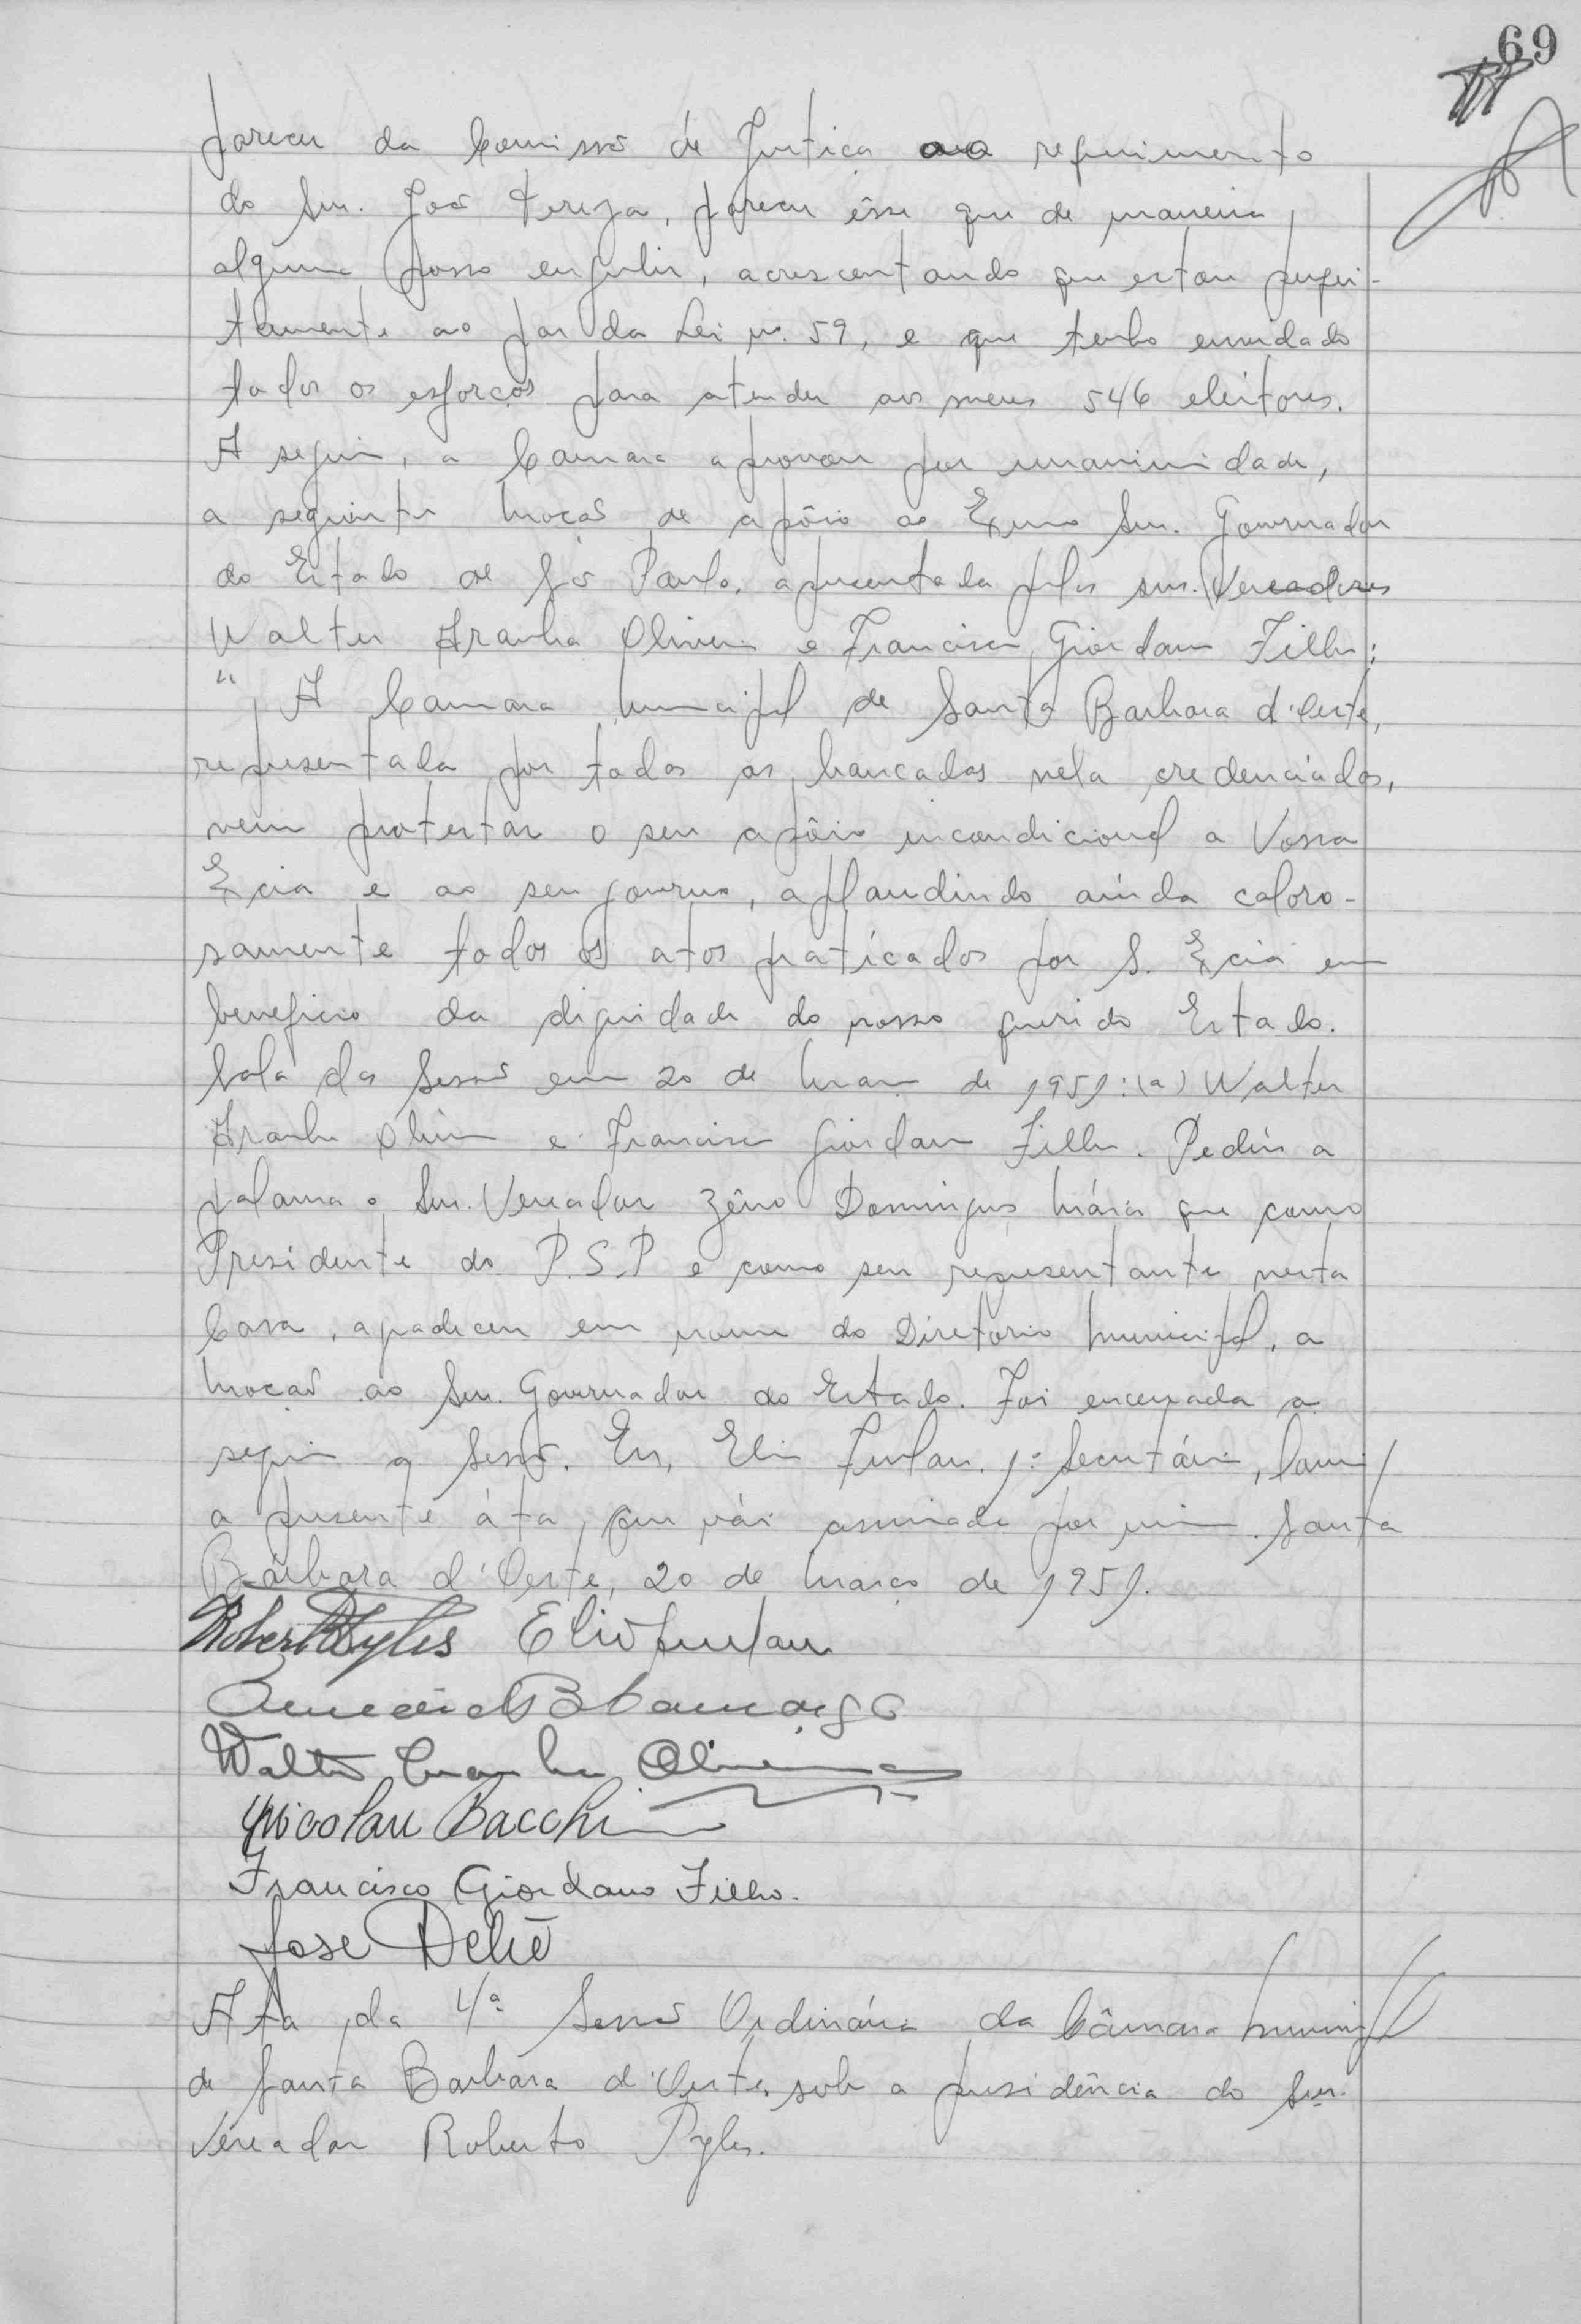 69
parecer da Comissão de Justiça ao requerimento
do Snr. João Tereza, parecer êsse que de maneira
alguma posso engulir, acrescentando que estou perfei-
tamente ao par da Lei nº 59, e que tenho envidado
todos os esforços para atender aos meus 546 eleitores.
A seguir, a Camara aprovou por unanimidade,
a seguinte moção de apôio ao Exmo Snr. Governador
do Estado de São Paulo, apresentada pelos snrs. Vereadores
Walter Aranha Oliveira e Francisco Giordano Filho:
" A Camara Municipal de Santa Barbara d'Oeste,
representada por todas as bancadas nela credenciadas,
vem protestar o seu apôio incondicional a Vossa
Excia e ao seu governo, aplaudindo ainda caloro-
samente todos os atos praticados por S. Excia em
beneficio da dignidade do nosso querido Estado.
Sala das Sessões em 20 de Março de 1951: (a) Walter
Aranha Oliveira e Francisco Giordano Filho. Pediu a
palavra o Snr. Vereador Zêno Domingues Máia que como
Presidente do P.S.P e como seu representante nesta
Casa, agradeceu em nome do Diretorio Municipal, a
moção ao Snr. Governador do Estado. Foi encerrada a
seguir a Sessão. Eu, Elio Furlan, 1º Secretário, lavrei
a presente áta, que vái assinada por mim. Santa
Bárbara d'Oeste, 20 de Março de 1951.
Roberto Pyles Elio Furlan
Benedicto B Camargo
Walter Aranha Oliveira
Nicolau Bacchi
Francisco Giordano Filho.
José Dehó
Ata da 4ª Sessão Ordinária da Câmara Municipal
de Santa Barbara d'Oeste, sob a presidência do Snr.
Vereador Roberto Pyles.